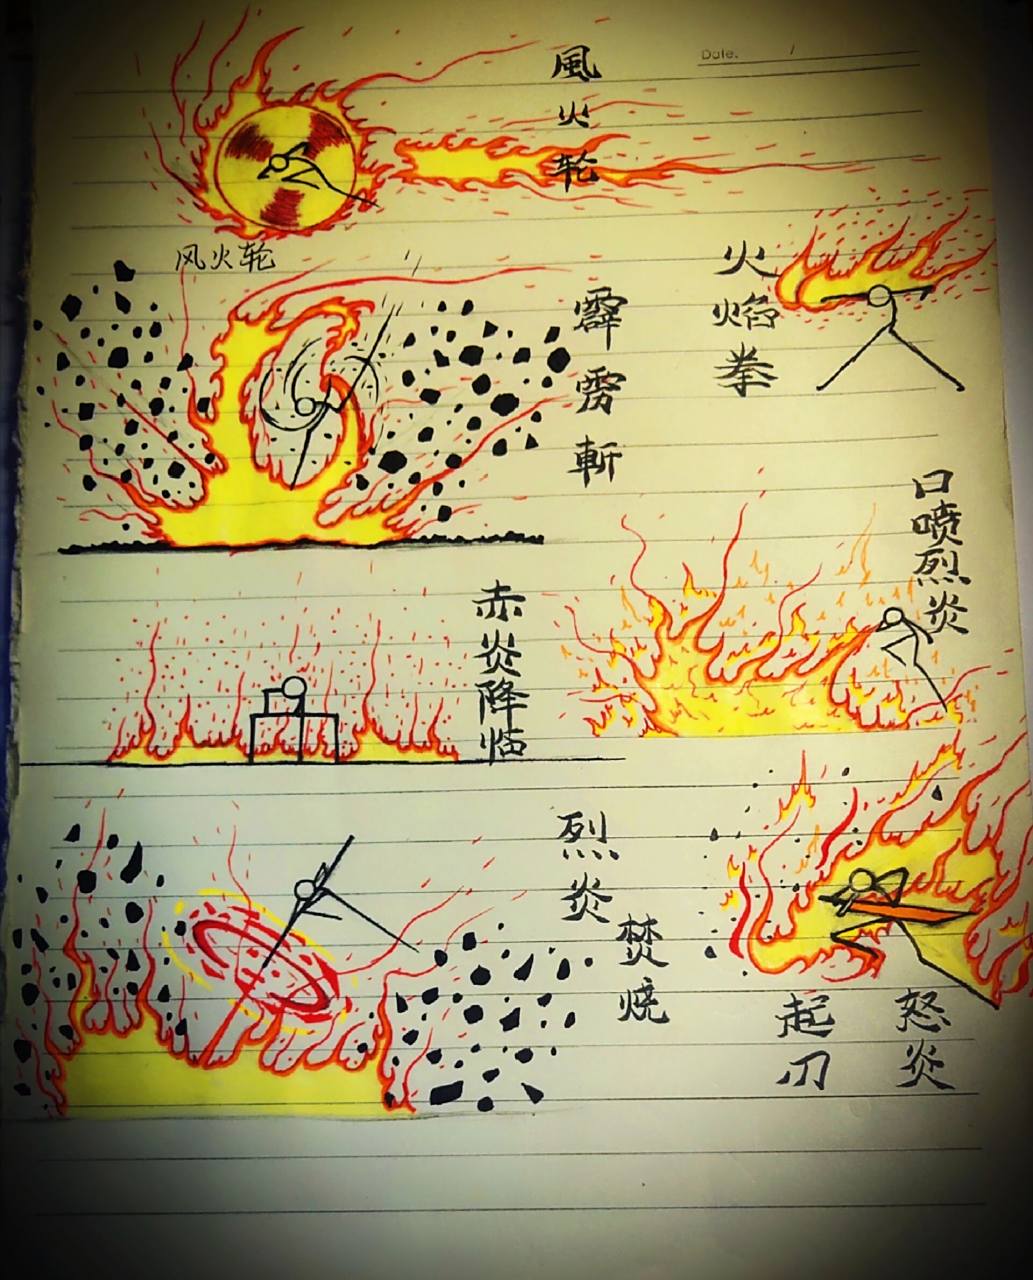 Date. /
風火轮
风火轮
火焰拳
霹雳斬
口喷烈炎
赤炎降临
烈炎
焚烧
怒炎
起刀